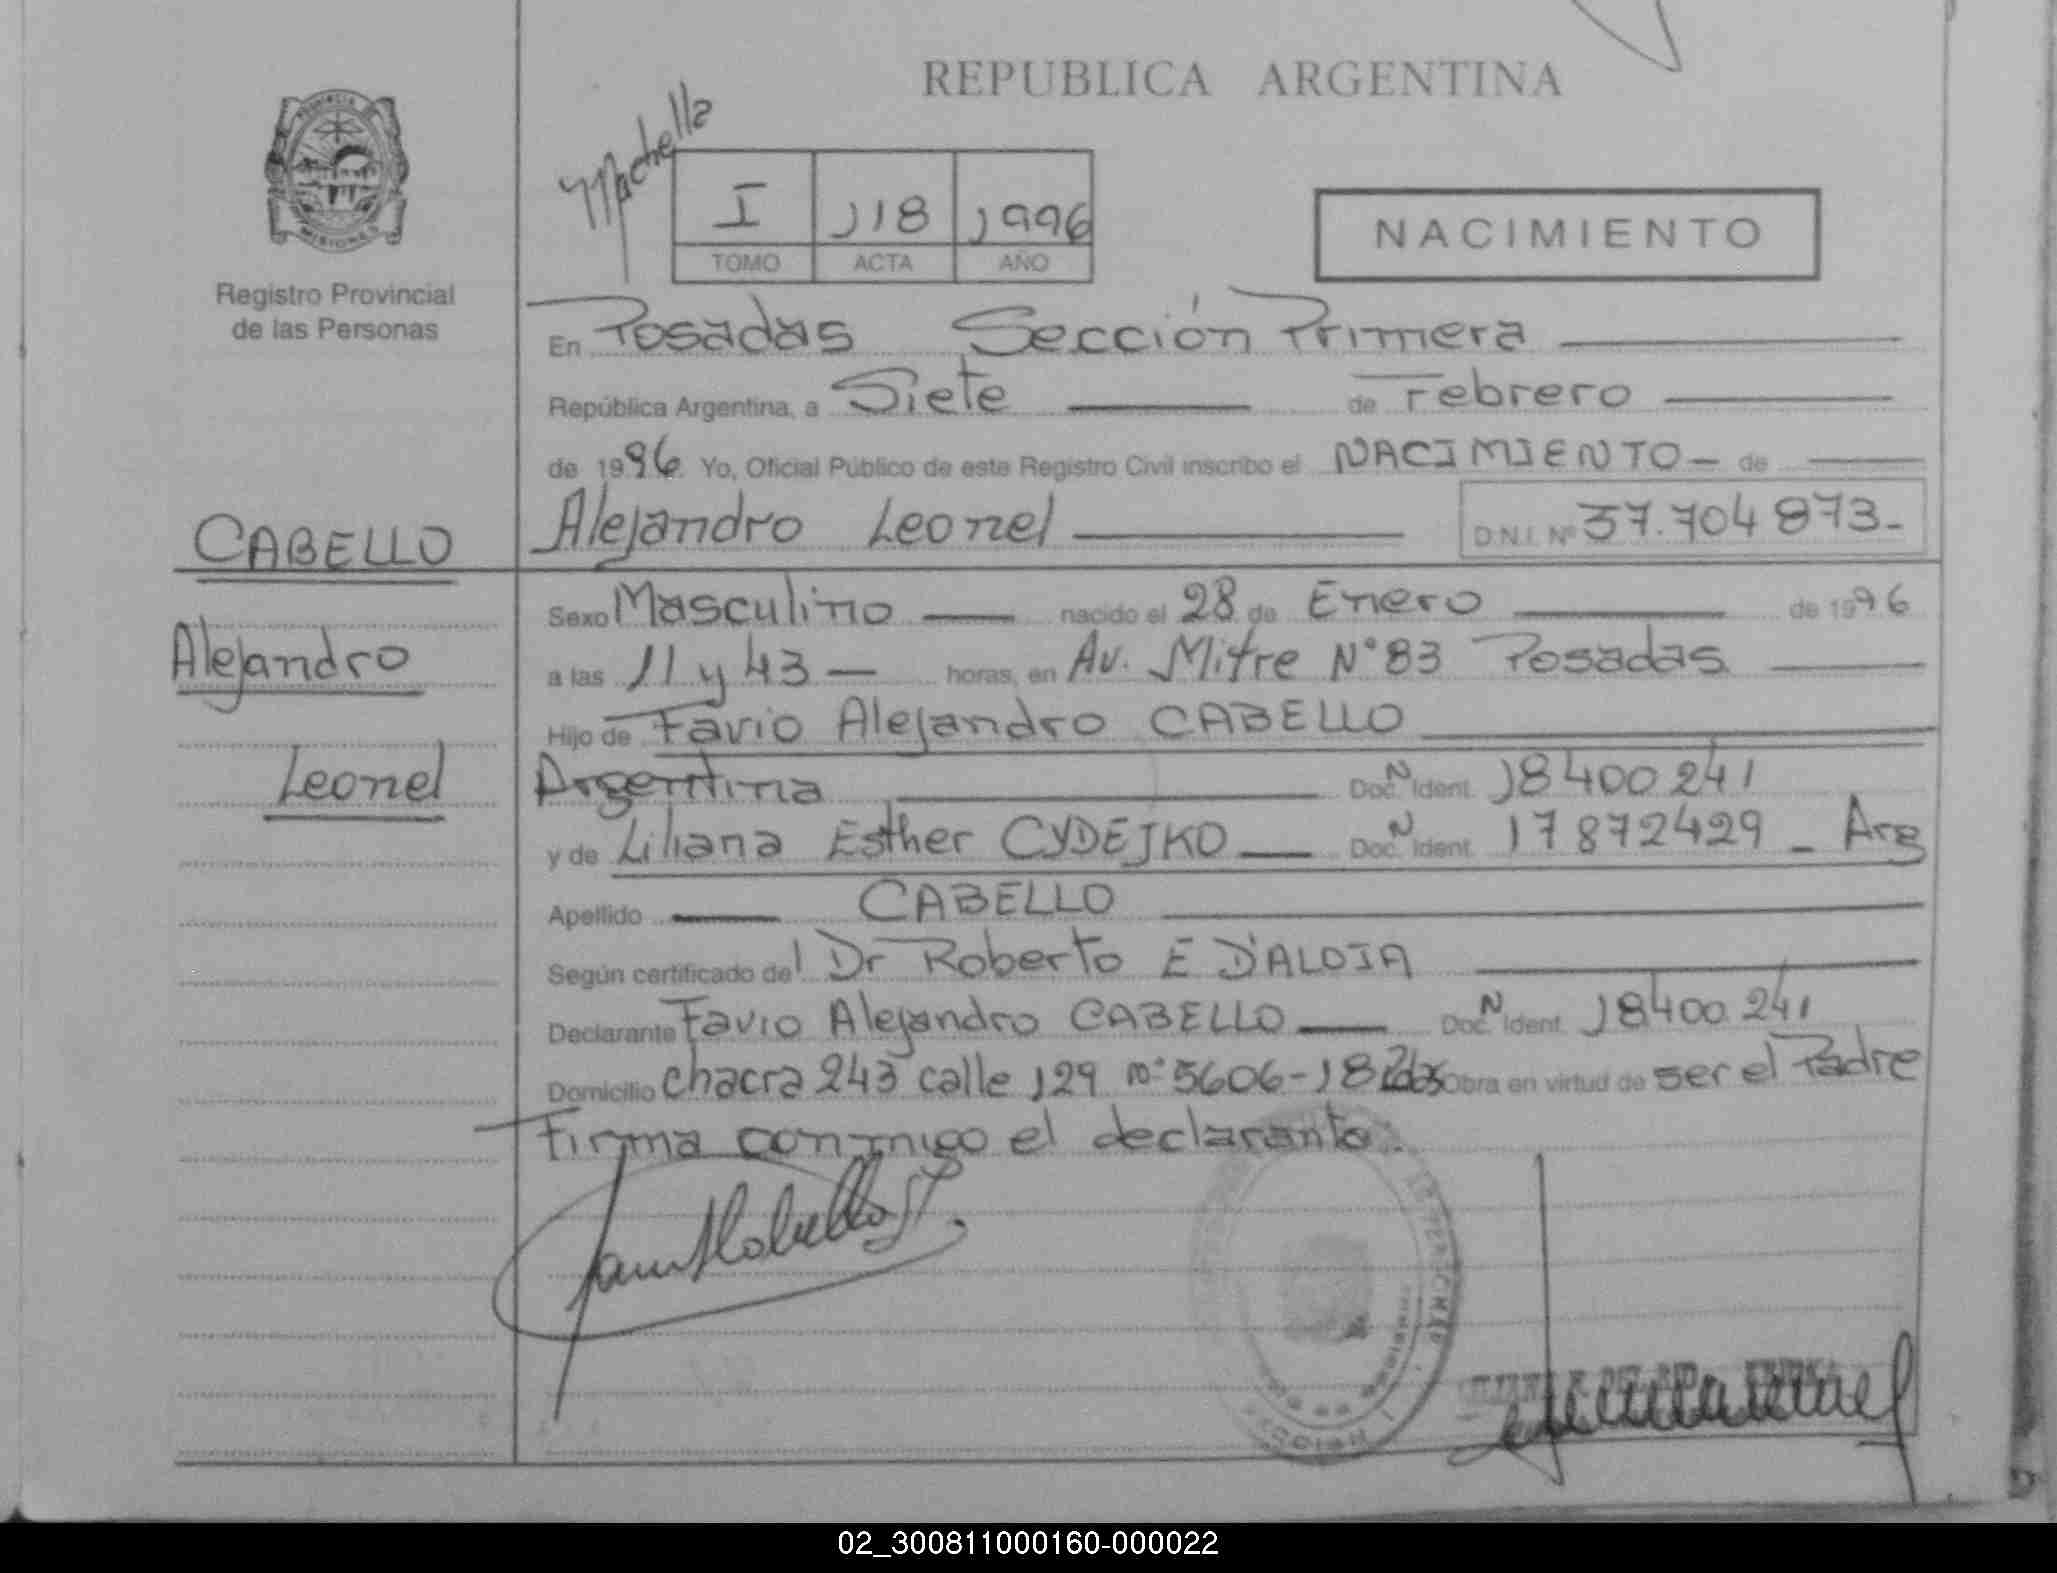 REPUBLICA ARGENTINA
PROVINCIA
MISIONES
Registro Provincial
de las Personas
Machella
I 118 1996
TOMO ACTA AÑO
NACIMIENTO
En Posadas Sección Primera
República Argentina, a Siete de Febrero
de 1996. Yo, Oficial Público de este Registro Civil inscribo el NACIMIENTO - de
CABELLO
Alejandro
Leonel
Alejandro Leonel D.N.I. Nº 37.704 873-
Sexo Masculino nacido el 28 de Enero de 1996
a las 11 y 43 horas, en Av. Mitre N° 83 Posadas
Hijo de Favio Alejandro CABELLO
Argentina Doc. N Ident. 18400241
y de Liliana Esther CYDEJKO Doc. N Ident. 17872429 - Arg
Apellido CABELLO
Según certificado del Dr Roberto E D'ALOIA
Declarante Favio Alejandro CABELLO Doc. N Ident. 18400241
Domicilio chacra 243 calle 129 n° 5606-182 Obra en virtud de ser el Padre
Firma conmigo el declarante.
SECCION
02_300811000160-000022